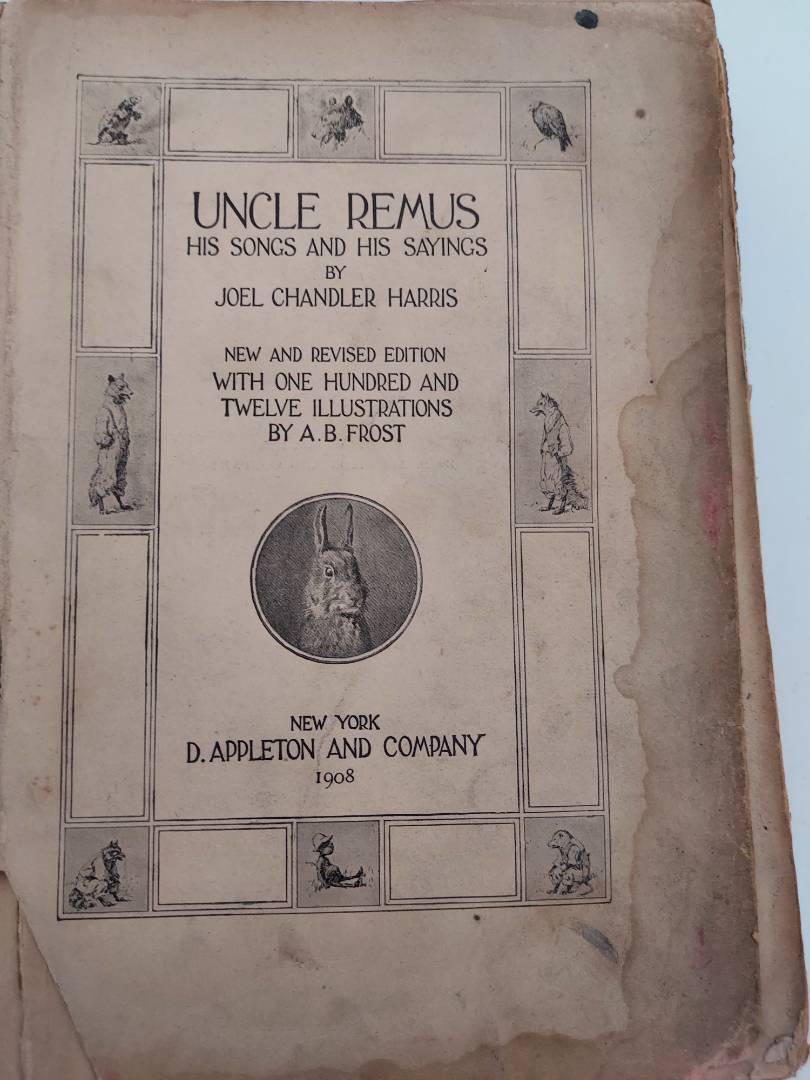 UNCLE REMUS
HIS SONGS AND HIS SAYINGS
BY
JOEL CHANDLER HARRIS
NEW AND REVISED EDITION
WITH ONE HUNDRED AND
TWELVE ILLUSTRATIONS
BY A.B. FROST
NEW YORK
D. APPLETON AND COMPANY
1908